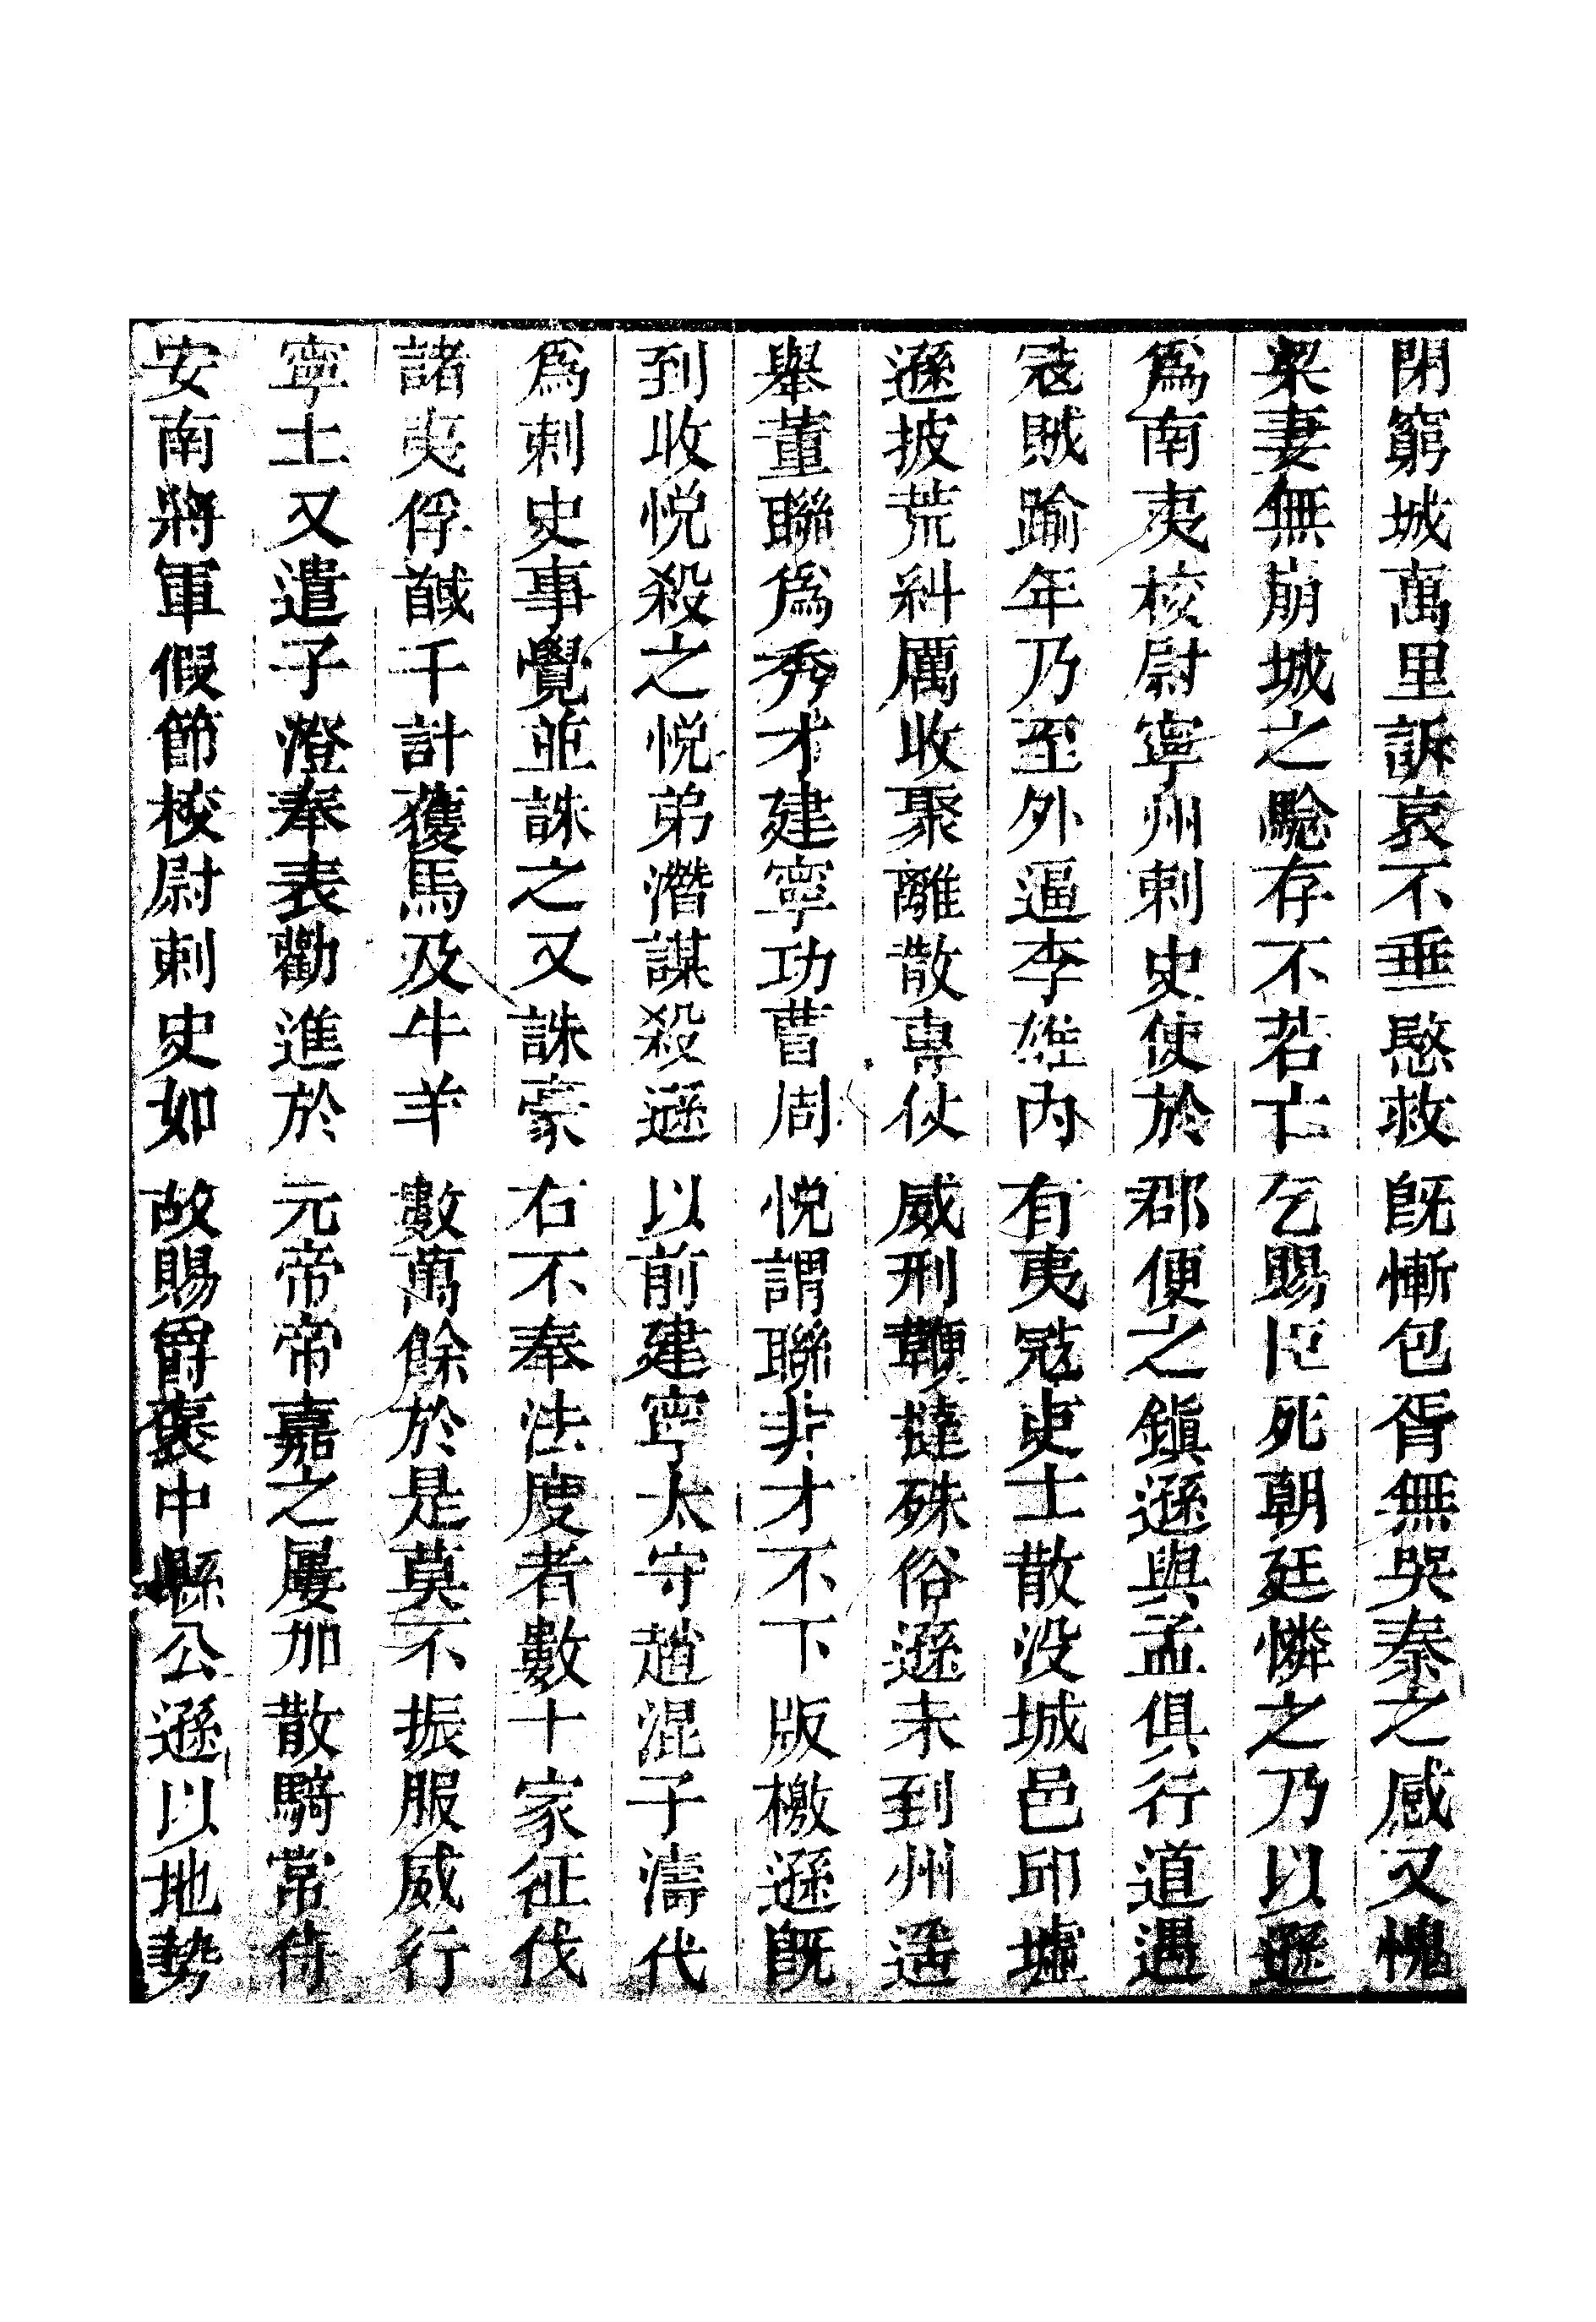 閉窮城萬里訴哀不垂愍救旣慚包胥無哭秦之感又愧
梁妻無崩城之驗存不若亡乞賜臣死朝廷憐之乃以遜
爲南夷校尉寧州刺史使於郡便之鎮遜與孟俱行道遇
宼賊踰年乃至外逼李雄內有夷宼吏士散没城邑邱墟
遜披荒糾厲收聚離散專仗威刑鞭撻殊俗遜未到州遥
舉董聯爲秀才建寧功曹周悦謂聯非才不下版檄遜旣
到收悦殺之悦弟潛謀殺遜以前建寧太守趙混子濤代
爲刺史事覺並誅之又誅豪右不奉法度者數十家征伐
諸夷俘馘千計獲馬及牛羊數萬餘於是莫不振服威行
寧土又遣子澄奉表勸進於元帝帝嘉之屢加散騎常侍
安南將軍假節校尉刺史如故賜爵褒中縣公遜以地勢